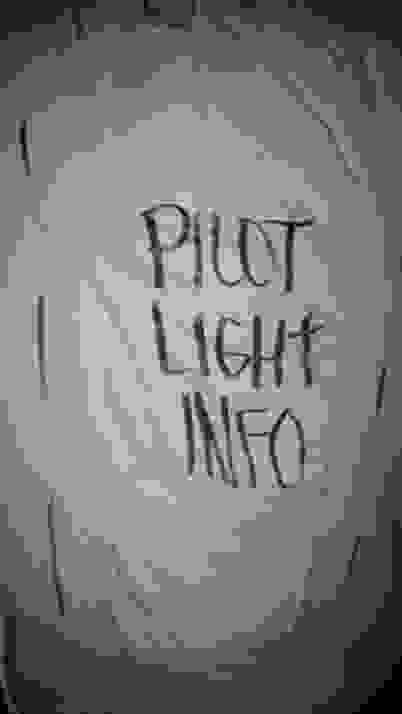 PILOT
LIGHT
INFO